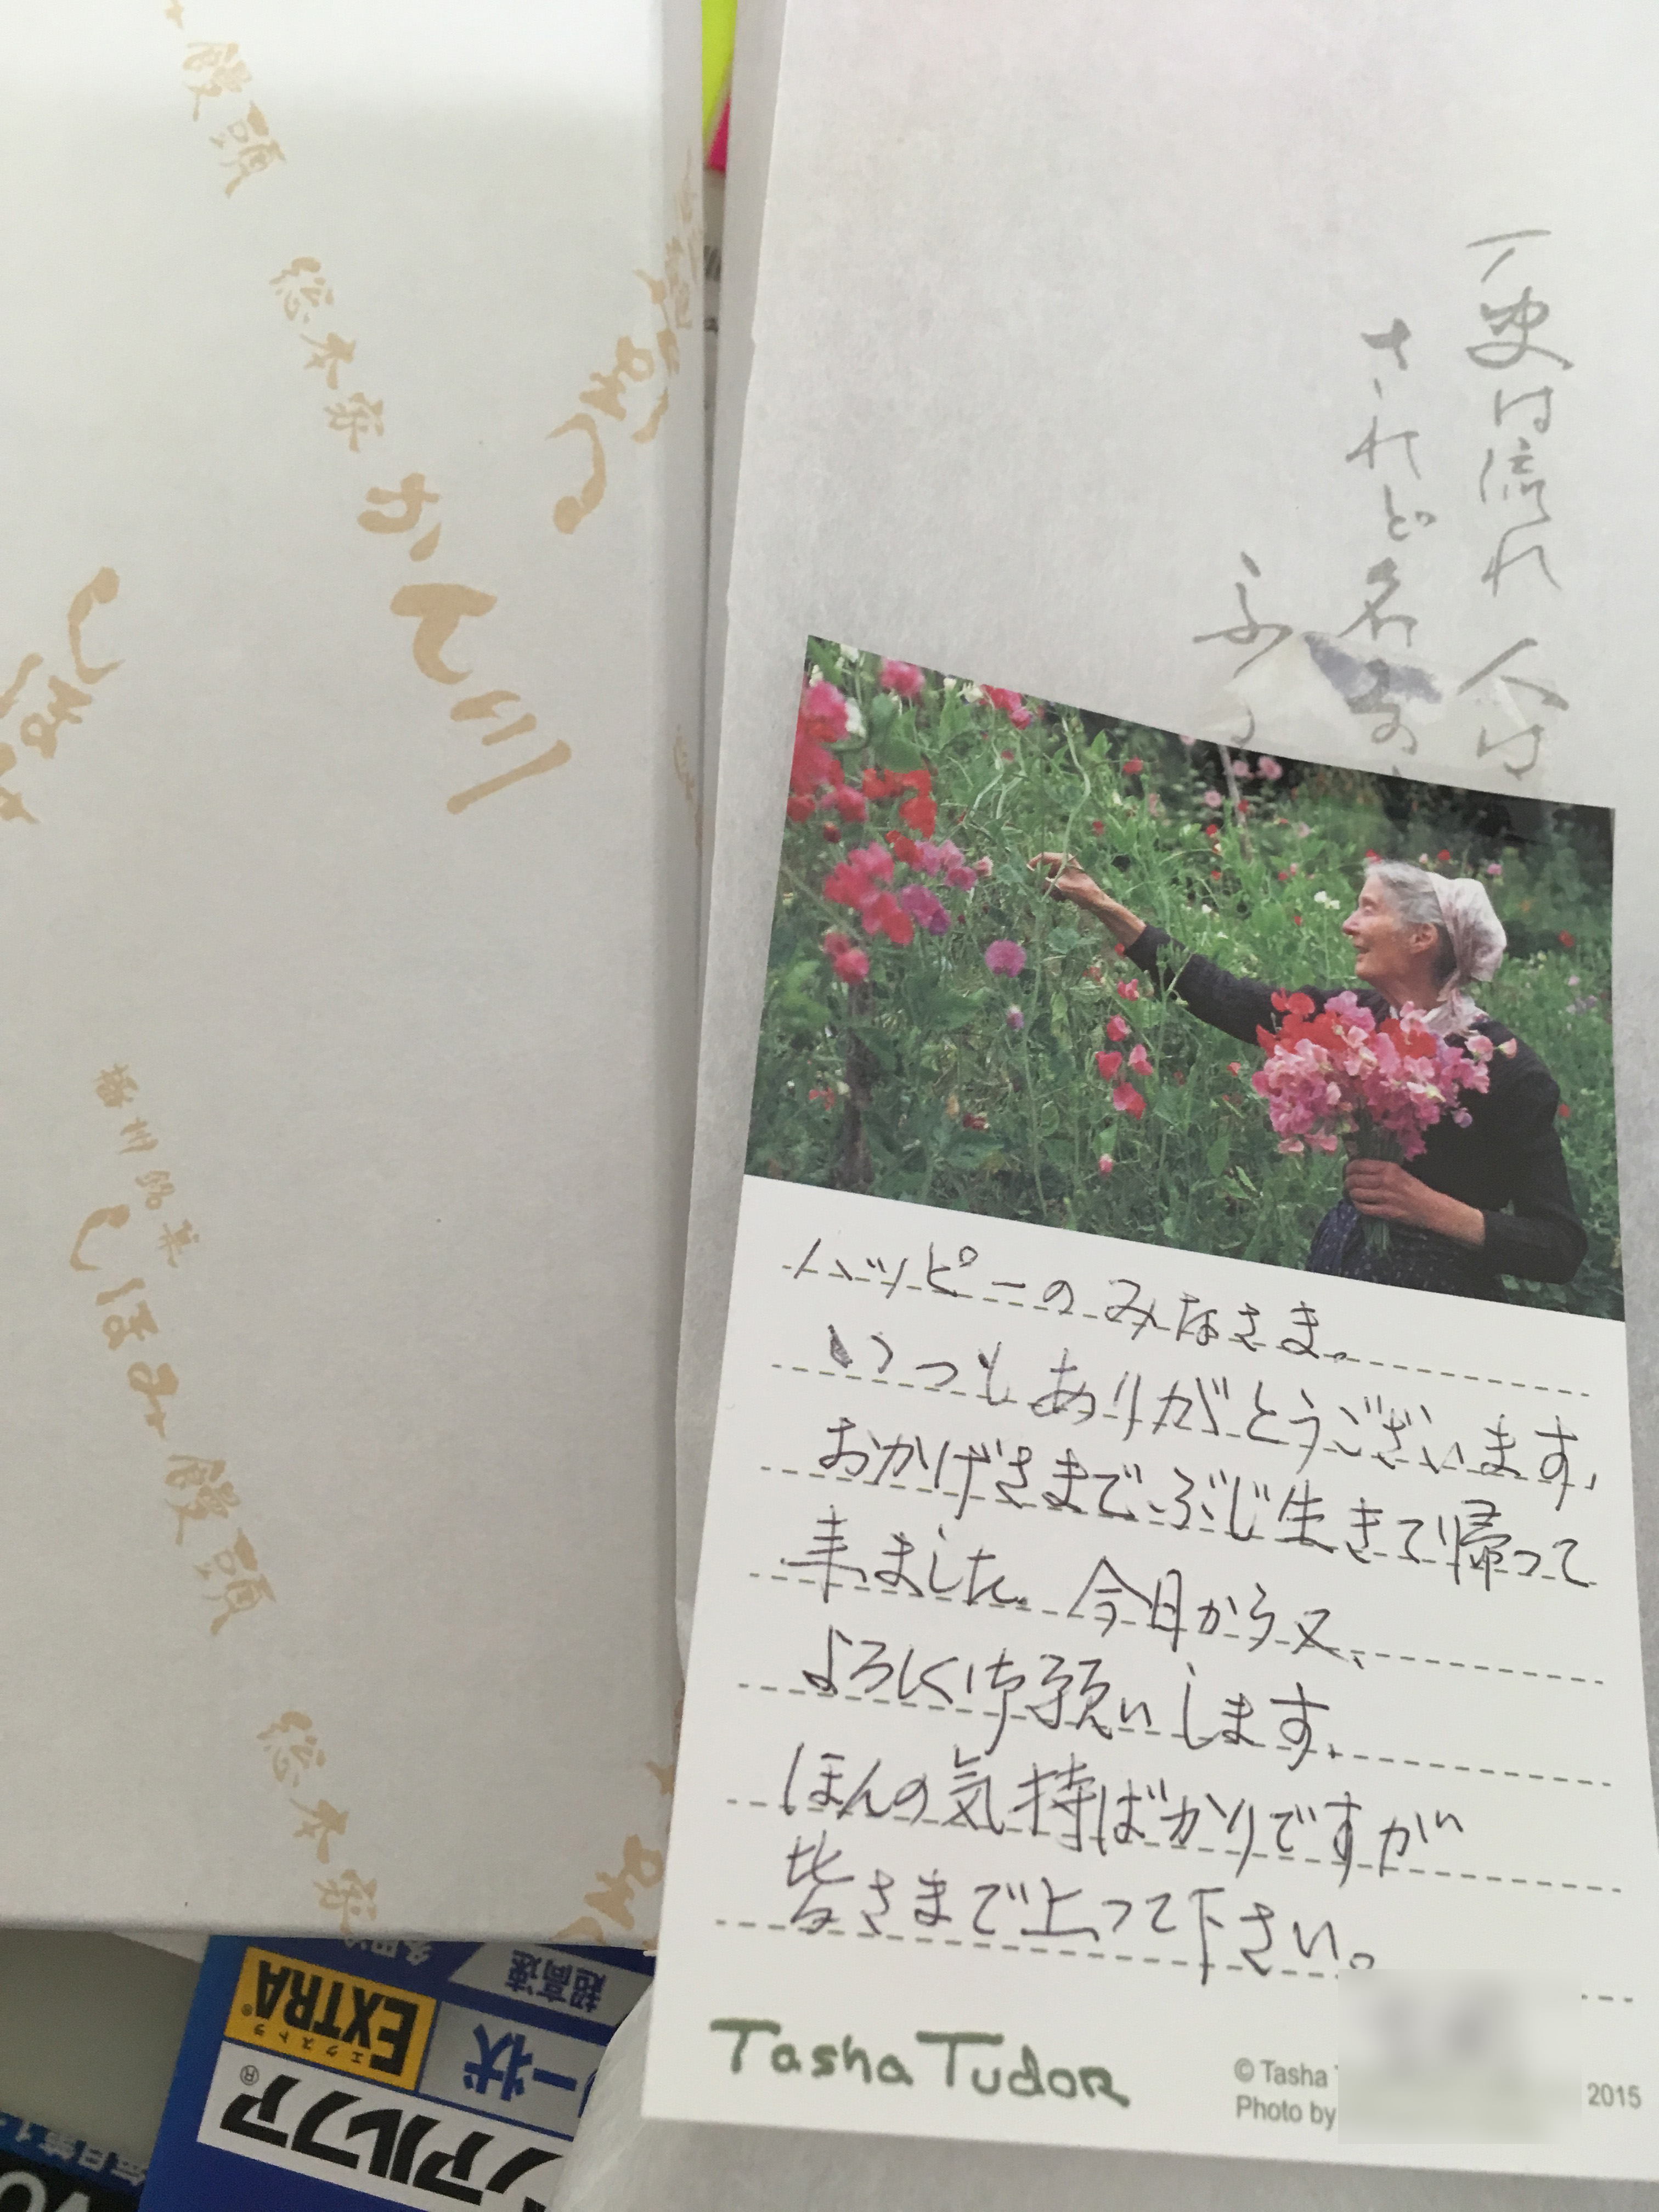 饅頭
総本家
かん川
しほみ
播州銘菓
しほみ
饅頭
総本家
歴史は流れ 人は
されど名物の
ハッピーのみなさま。
いつもありがとうございます、
おかげさまでぶじ生きて帰って
来ました。今日から又、
よろしく御願いします。
ほんの気持ばかりですが
皆さまで上って下さい。
Tasha Tudor
© Tasha
2015
Photo by
超高速
EXTRA
エクストラ
ー状
ンアルファ